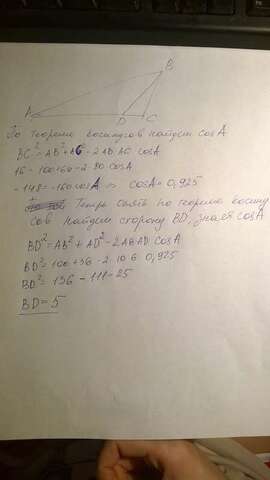 B
A
D C
По теореме косинусов найдем cosA
BC² = AB² + AC² - 2AB AC cosA
16 = 100+60 - 2·80·cosA
-148 = -160 cosA => cosA = 0,925
Теперь опять по теореме косину
сов найдем сторону BD, зная cosA
BD² = AB² + AD² - 2AB AD cosA
BD² = 100+36 - 2·10·6·0,925
BD² = 136 - 111 = 25
BD = 5